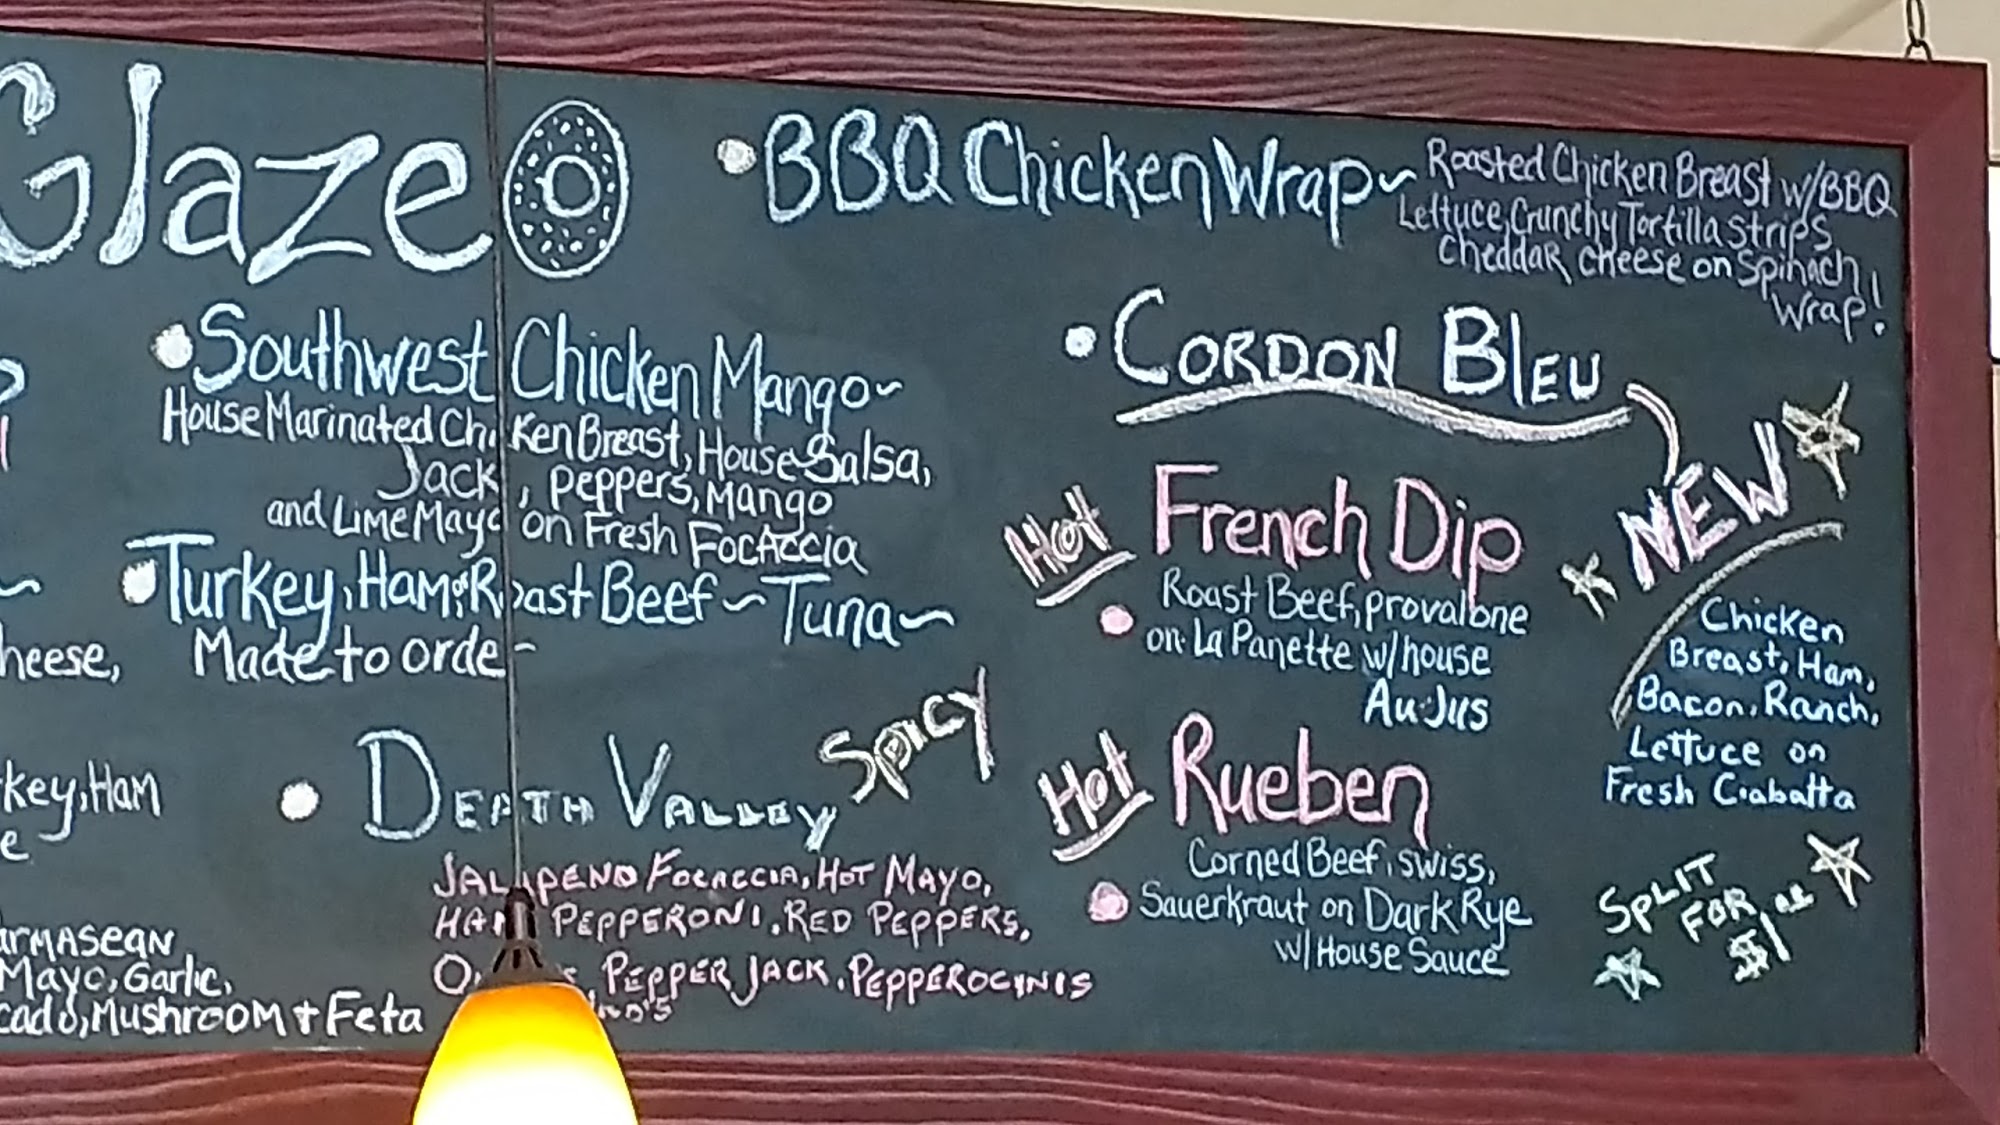 Glaze
BBQ Chicken Wrap~
Roasted Chicken Breast w/BBQ
Lettuce, Crunchy Tortilla Strips
Cheddar cheese on Spinach
Wrap!
Southwest Chicken Mango~
House Marinated Chicken Breast, House Salsa,
Jack, peppers, Mango
and Lime Mayo on Fresh Focaccia
Turkey, Ham, Roast Beef ~ Tuna ~
Made to order~
heese,
Death Valley Spicy
Jalapeno Focaccia, Hot Mayo,
Ham Pepperoni, Red Peppers,
Pepper Jack, Pepperocinis
key, Ham
e
armasean
Mayo, Garlic,
cado, Mushroom + Feta
Cordon Bleu
NEW
Chicken
Breast, Ham,
Bacon, Ranch,
Lettuce on
Fresh Ciabatta
Hot French Dip
Roast Beef, provalone
on La Panette w/house
Au Jus
Hot Rueben
Corned Beef, swiss,
Sauerkraut on Dark Rye
w/House Sauce
Split
for